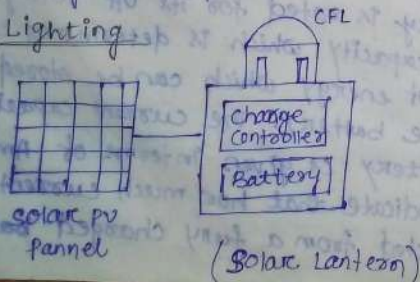 Lighting
CFL
Change
Controller
Battery
Solar PV
Pannel
(Solar Lantern)